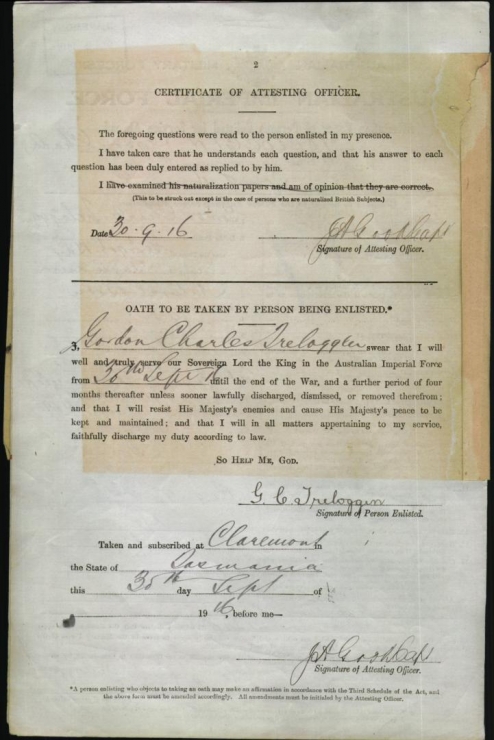 2
CERTIFICATE OF ATTESTING OFFICER.
The foregoing questions were read to the person enlisted in my presence.
I have taken care that he understands each question, and that his answer to each
question has been duly entered as replied to by him.
I have examined his naturalization papers and am of opinion that they are correct.
(This to be struck out except in the case of persons who are naturalized British Subjects.)
Date 30.9.16
Signature of Attesting Officer.
OATH TO BE TAKEN BY PERSON BEING ENLISTED.*
I, Gordon Charles Treloggen swear that I will
well and truly serve our Sovereign Lord the King in the Australian Imperial Force
from 30th Sept 16 until the end of the War, and a further period of four
months thereafter unless sooner lawfully discharged, dismissed, or removed therefrom;
and that I will resist His Majesty's enemies and cause His Majesty's peace to be
kept and maintained; and that I will in all matters appertaining to my service,
faithfully discharge my duty according to law.
SO HELP ME, GOD.
G. C. Treloggen
Signature of Person Enlisted.
Taken and subscribed at Claremont in
the State of Tasmania
this 30th day Sept of
1916, before me—
Signature of Attesting Officer.
*A person enlisting who objects to taking an oath may make an affirmation in accordance with the Third Schedule of the Act, and
the above form must be amended accordingly. All amendments must be initialed by the Attesting Officer.